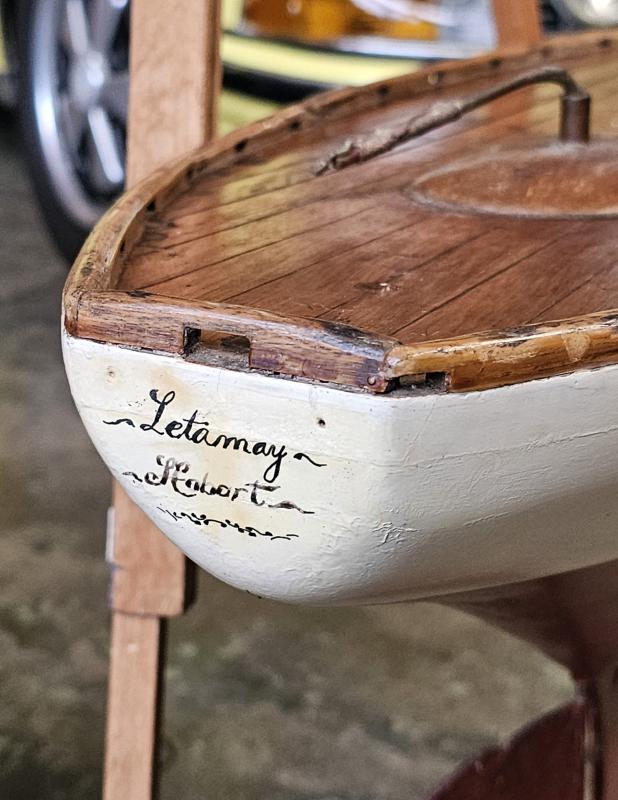 Letamay
Hobart